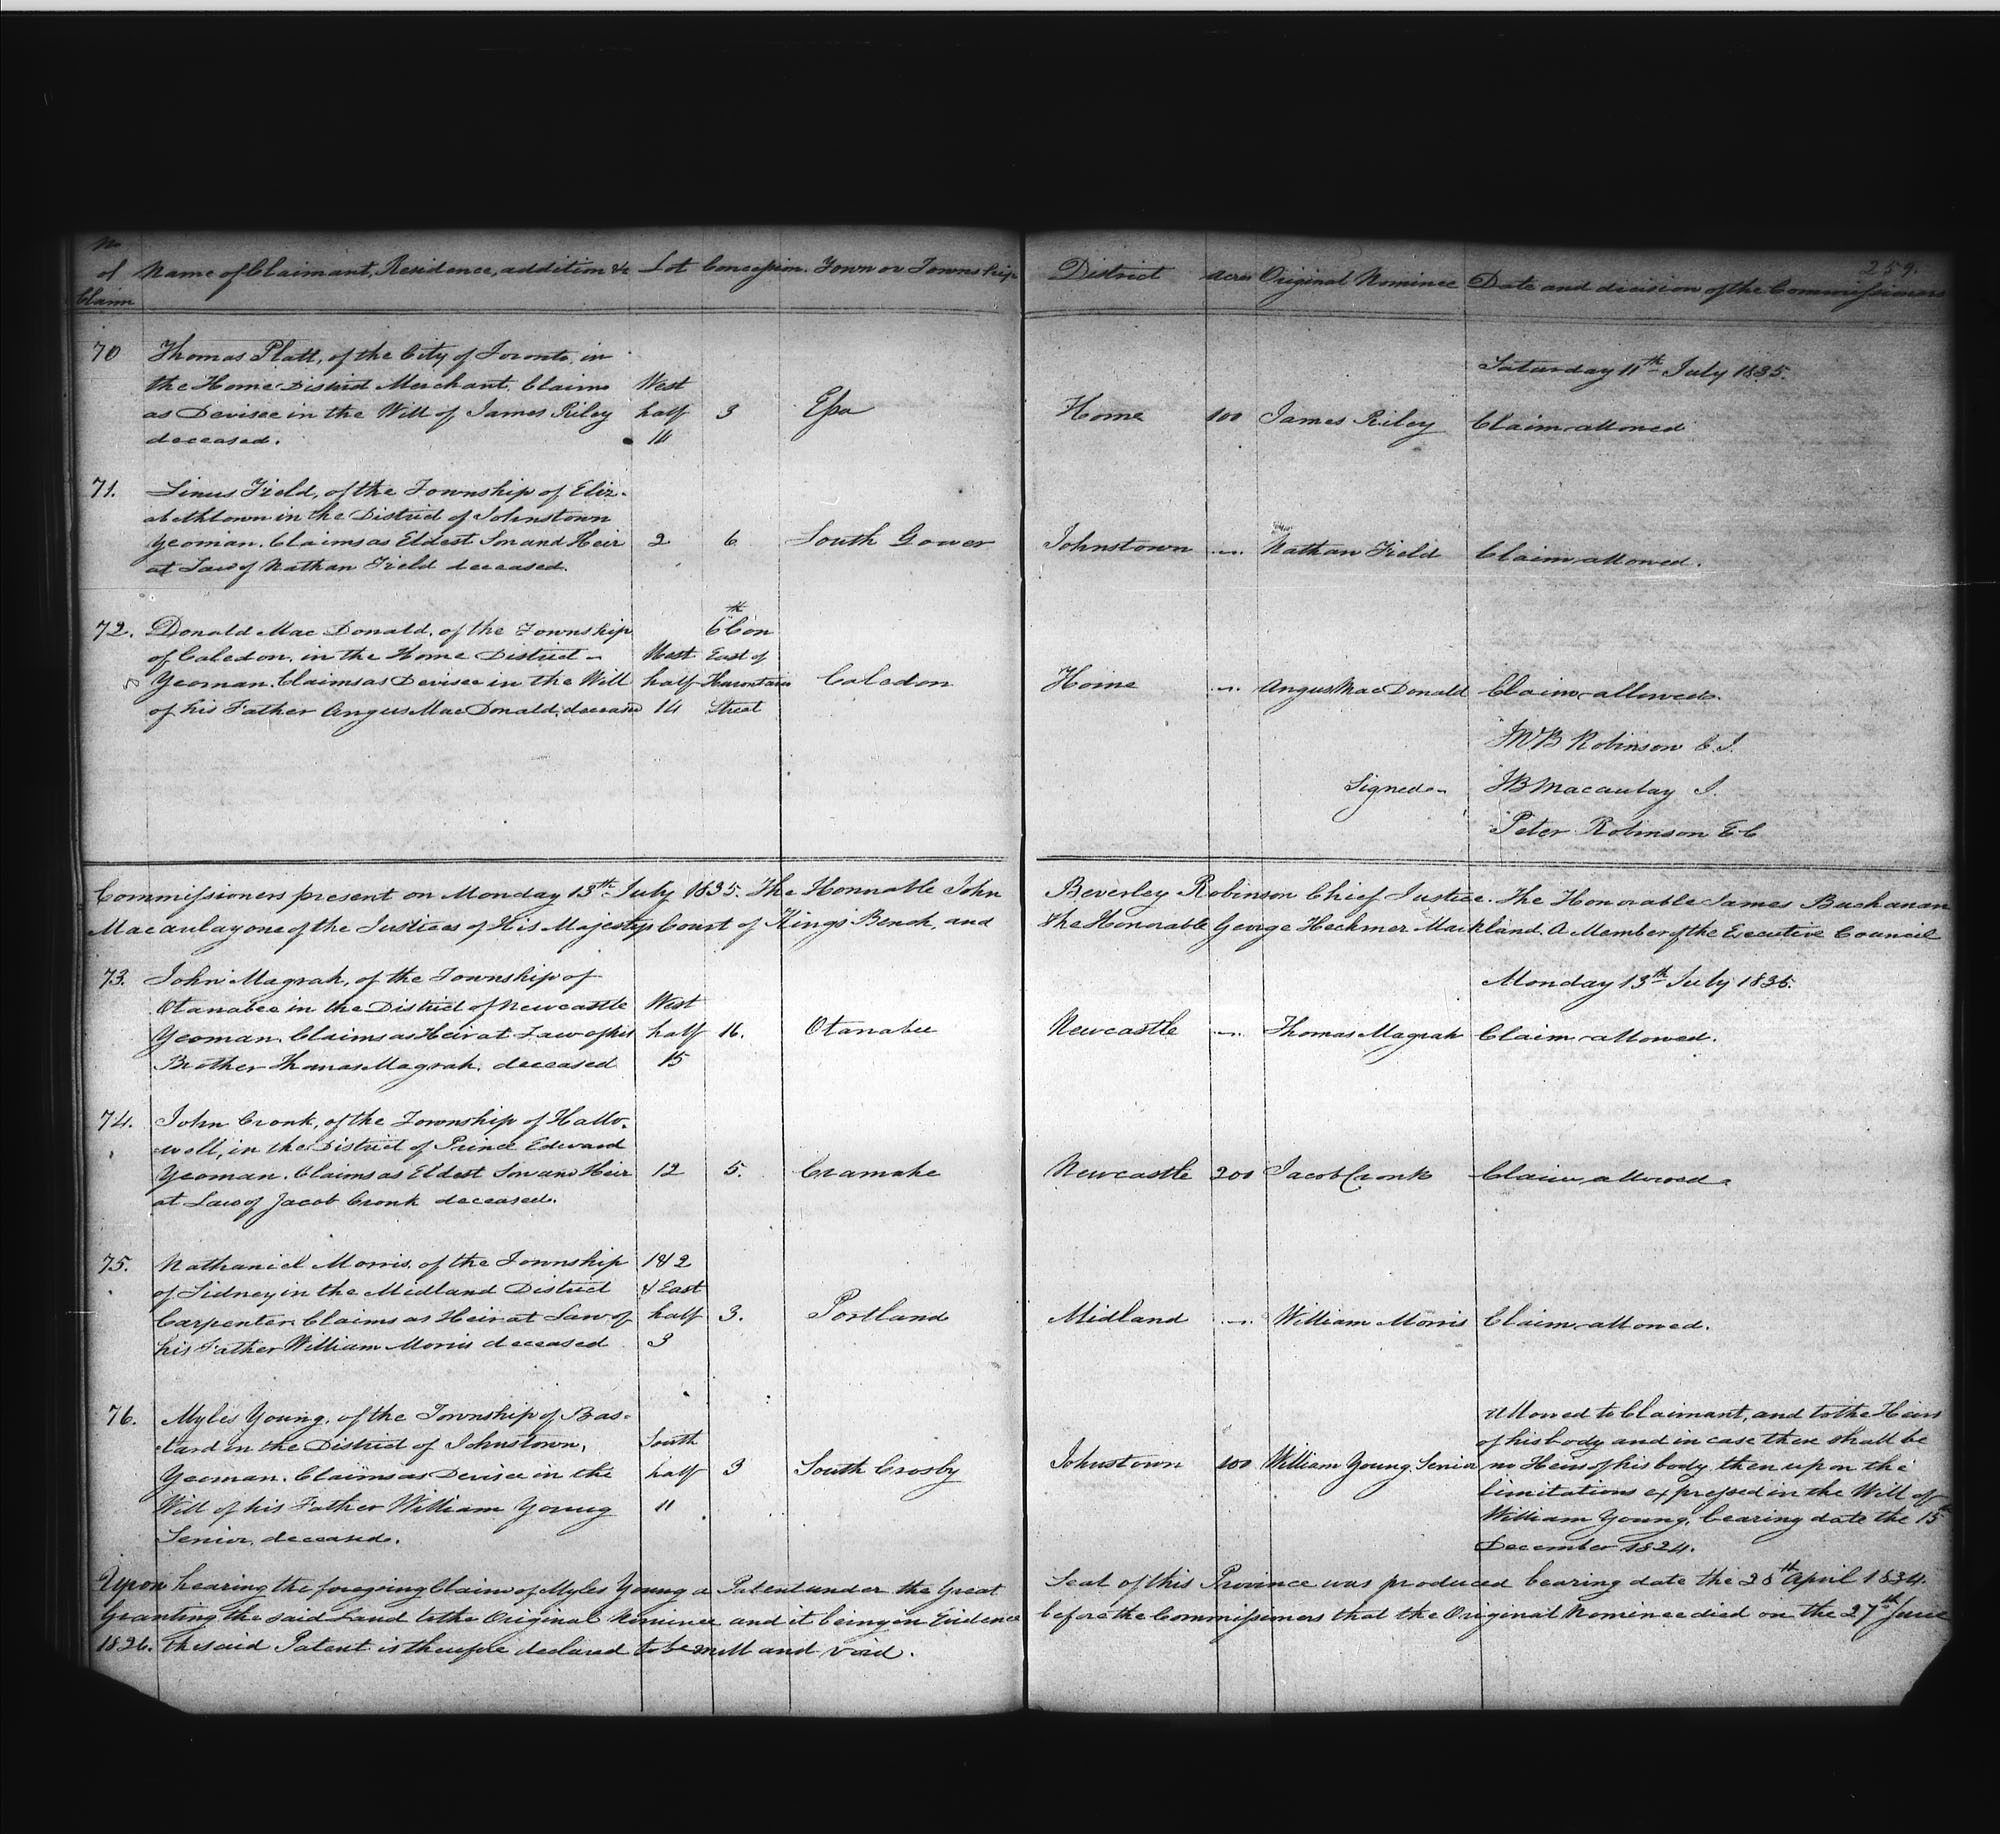 No of Claim Name of Claimant, Residence, addition &c Lot Concession. Town or Township District Acres Original Nominee Date and decision of the Commissioners
259.
70 Thomas Platt, of the City of Toronto, in
the Home District Merchant. Claims
as Devisee in the Will of James Riley
deceased.
West
half
14
3
Essa
Home
100
James Riley
Saturday 11th July 1835.
Claim allowed
71. Linus Field, of the Township of Eliz-
abethtown in the District of Johnstown
Yeoman. Claims as Eldest Son and Heir
at Law of Nathan Field deceased.
2
6
South Gower
Johnstown
Nathan Field
Claim allowed.
72. Donald Mac Donald, of the Township
of Caledon, in the Home District -
Yeoman. Claims as Devisee in the Will
of his Father Angus Mac Donald, deceased
West
half
14
6th Con
East of
Hurontario
Street
Caledon
Home
Angus Mac Donald
Claim allowed.
Signed -
Robinson C. J.
JB Macaulay J.
Peter Robinson E C
Commissioners present on Monday 13th July 1835. The Honorable John Beverley Robinson Chief Justice. The Honorable James Buchanan
Macaulay one of the Justices of His Majestys Court of Kings Bench, and the Honorable George Heckmer Markland. A Member of the Executive Council
73. John Magrah, of the Township of
Otanabee in the District of Newcastle
Yeoman. Claims as Heir at Law of his
Brother Thomas Magrah, deceased
West
half
15
16.
Otanabee
Newcastle
Thomas Magrah
Monday 13th July 1835.
Claim allowed.
74. John Cronk, of the Township of Hallo-
well, in the District of Prince Edward
Yeoman. Claims as Eldest Son and Heir
at Law of Jacob Cronk deceased.
12
5.
Cramahe
Newcastle
200
Jacob Cronk
Claim allowed.
75. Nathaniel Morris, of the Township
of Sidney in the Midland District
Carpenter. Claims as Heir at Law of
his Father William Morris deceased
1 & 2
& East
half
3
3.
Portland
Midland
William Morris
Claim allowed.
76. Myles Young, of the Township of Bas-
tard in the District of Johnstown,
Yeoman. Claims as Devisee in the
Will of his Father William Young
Senior, deceased.
South
half
11
3
South Crosby
Johnstown
100
William Young Senior
Allowed to Claimant, and to the Heirs
of his body and in case there shall be
no Heirs of his body then upon the
limitations expressed in the Will of
William Young, bearing date the 15th
December 1824.
Upon hearing the foregoing Claim of Myles Young a Patent under the Great Seal of this Province was produced bearing date the 28th April 1834.
Granting the said Land to the Original Nominee and it being in Evidence before the Commissioners that the Original Nominee died on the 27th June
1826. The said Patent is therefore declared to be null and void.